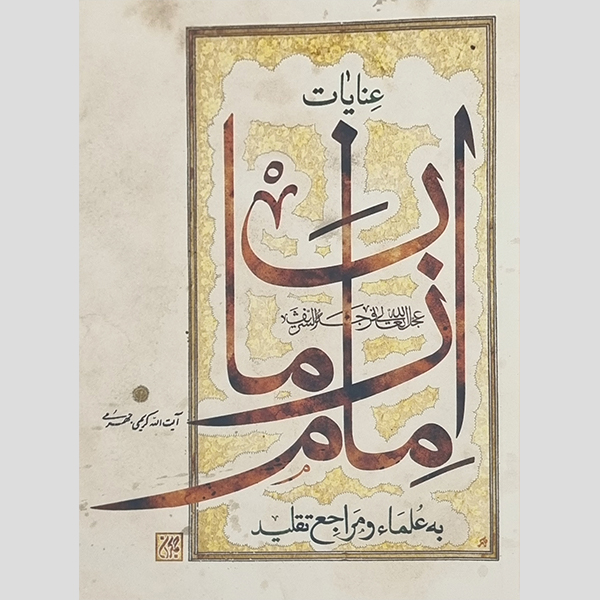 عنایات
امام زمان
عجل الله تعالی فرجه الشریف
به علماء و مراجع تقلید
آیت الله کریمی جهرمی